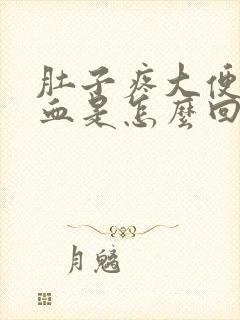 肚子疼大便
血是怎麼回
月